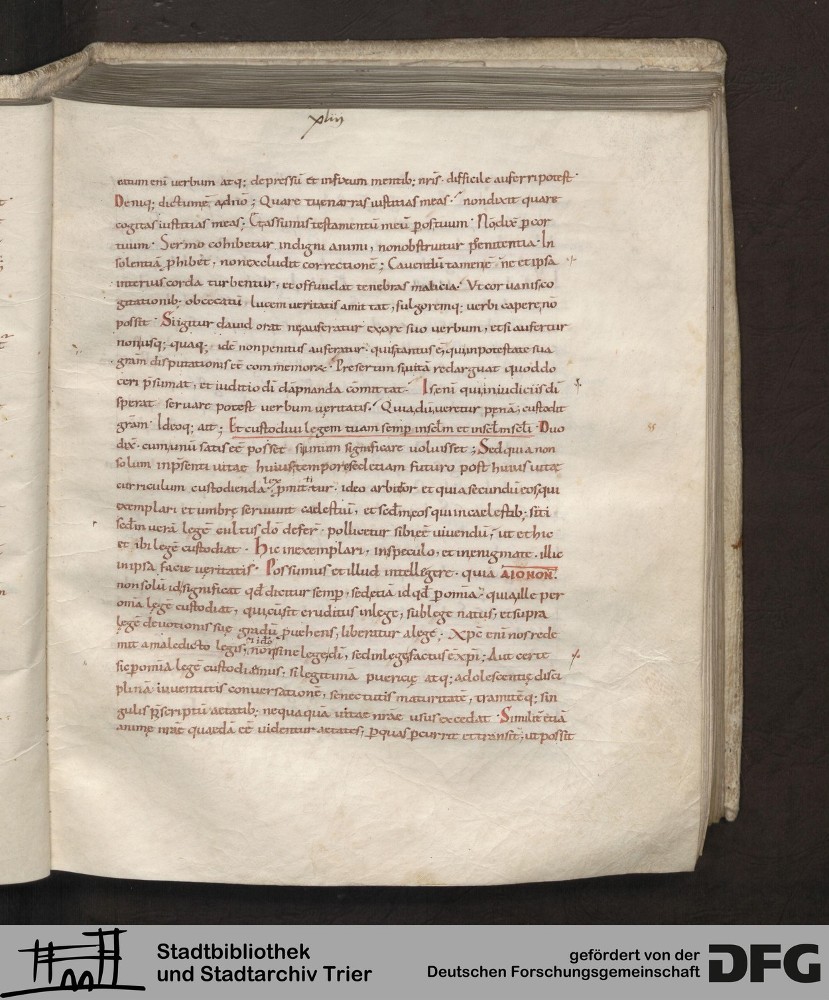 xliii
atum eni verbum atq; depressū et infixum mentib; nr̄is difficile auferri potest·
Deniq; dictum ē; Quare tu enarras iustitias meas· non dixit quare
cogitas iustitias meas; Et assumis testamentū meū per os tuum· Nō dix̄ p cor
tuum· Sermo cohibetur indigni animi, non obstruitur penitentia· In
solentiā phibet, non excludit correctionē; Cavendū tamen ē ne et ipsa
interius corda turbentur, et offundat tenebras malicia· Ut cor vanis co
gitationib; obcecatū lucem veritatis amittat, fulgoremq; verbi capere nō
possit· Si igitur david orat ne auferatur ex ore suo verbum, et si aufertur
non usq; quaq; idē non penitus auferatur· quis tantus ē, qui in potestate sua
gram disputationis eē commemoret· Presertim
ceri p̄sumat, et iuditio dī dāpnanda cōmittat· Is eni qui in iudiciis dī
sperat servare potest verbum veritatis· Qui a dū veretur penā, custodit
gram· Ideoq; ait; Et custodivi legem tuam semp in sc̄lm et in sc̄lm sc̄li· Duo
dix̄· cum unū satis eē posset si unum significare voluisset; Sed quia non
solum in p̄senti vitae huius tempore sed etiam futuro post huius vitae
curriculum custodienda lex p̄mittitur· ideo arbitror et quia secundū eos qui
exemplari et umbre serviunt caelestiū, et sc̄dm eos qui in caelestib; siti
sc̄dm verā legē cultus dō deferr· pollicetur sibi eē vivendū, ut et hic
et ibi legē custodiat· Hic in exemplari, in speculo, et in enigmate· illic
in ipsa facie veritatis· Possumus et illud intellegere· quia AIONON·
non solū id significat qd dicitur semp, sed etiā id qd p omīa, quia ille per
omīa legē custodiat, qui eruditus in lege, sub lege natus, et supra
legē devotionis suę gradū p̄vehens, liberatur a lege; Xpc eni nos rede
mit a maledicto legis, non sine lege dī, sed in lege factus ē xpi; Aut certe
sic p omīa legē custodiamus, si legitimā puericię atq; adolescentię disci
plinā iuventutis conversationē, senectutis maturitatē, tramitēq; sin
gulis p̄scriptū aetatib; nequaquā vitae nr̄ae usus excedat· Similit etiā
animę nr̄ae quaedā eē videntur aetates, p quas pcurrit et transit, ut possit
Stadtbibliothek
und Stadtarchiv Trier
gefördert von der
Deutschen Forschungsgemeinschaft
DFG